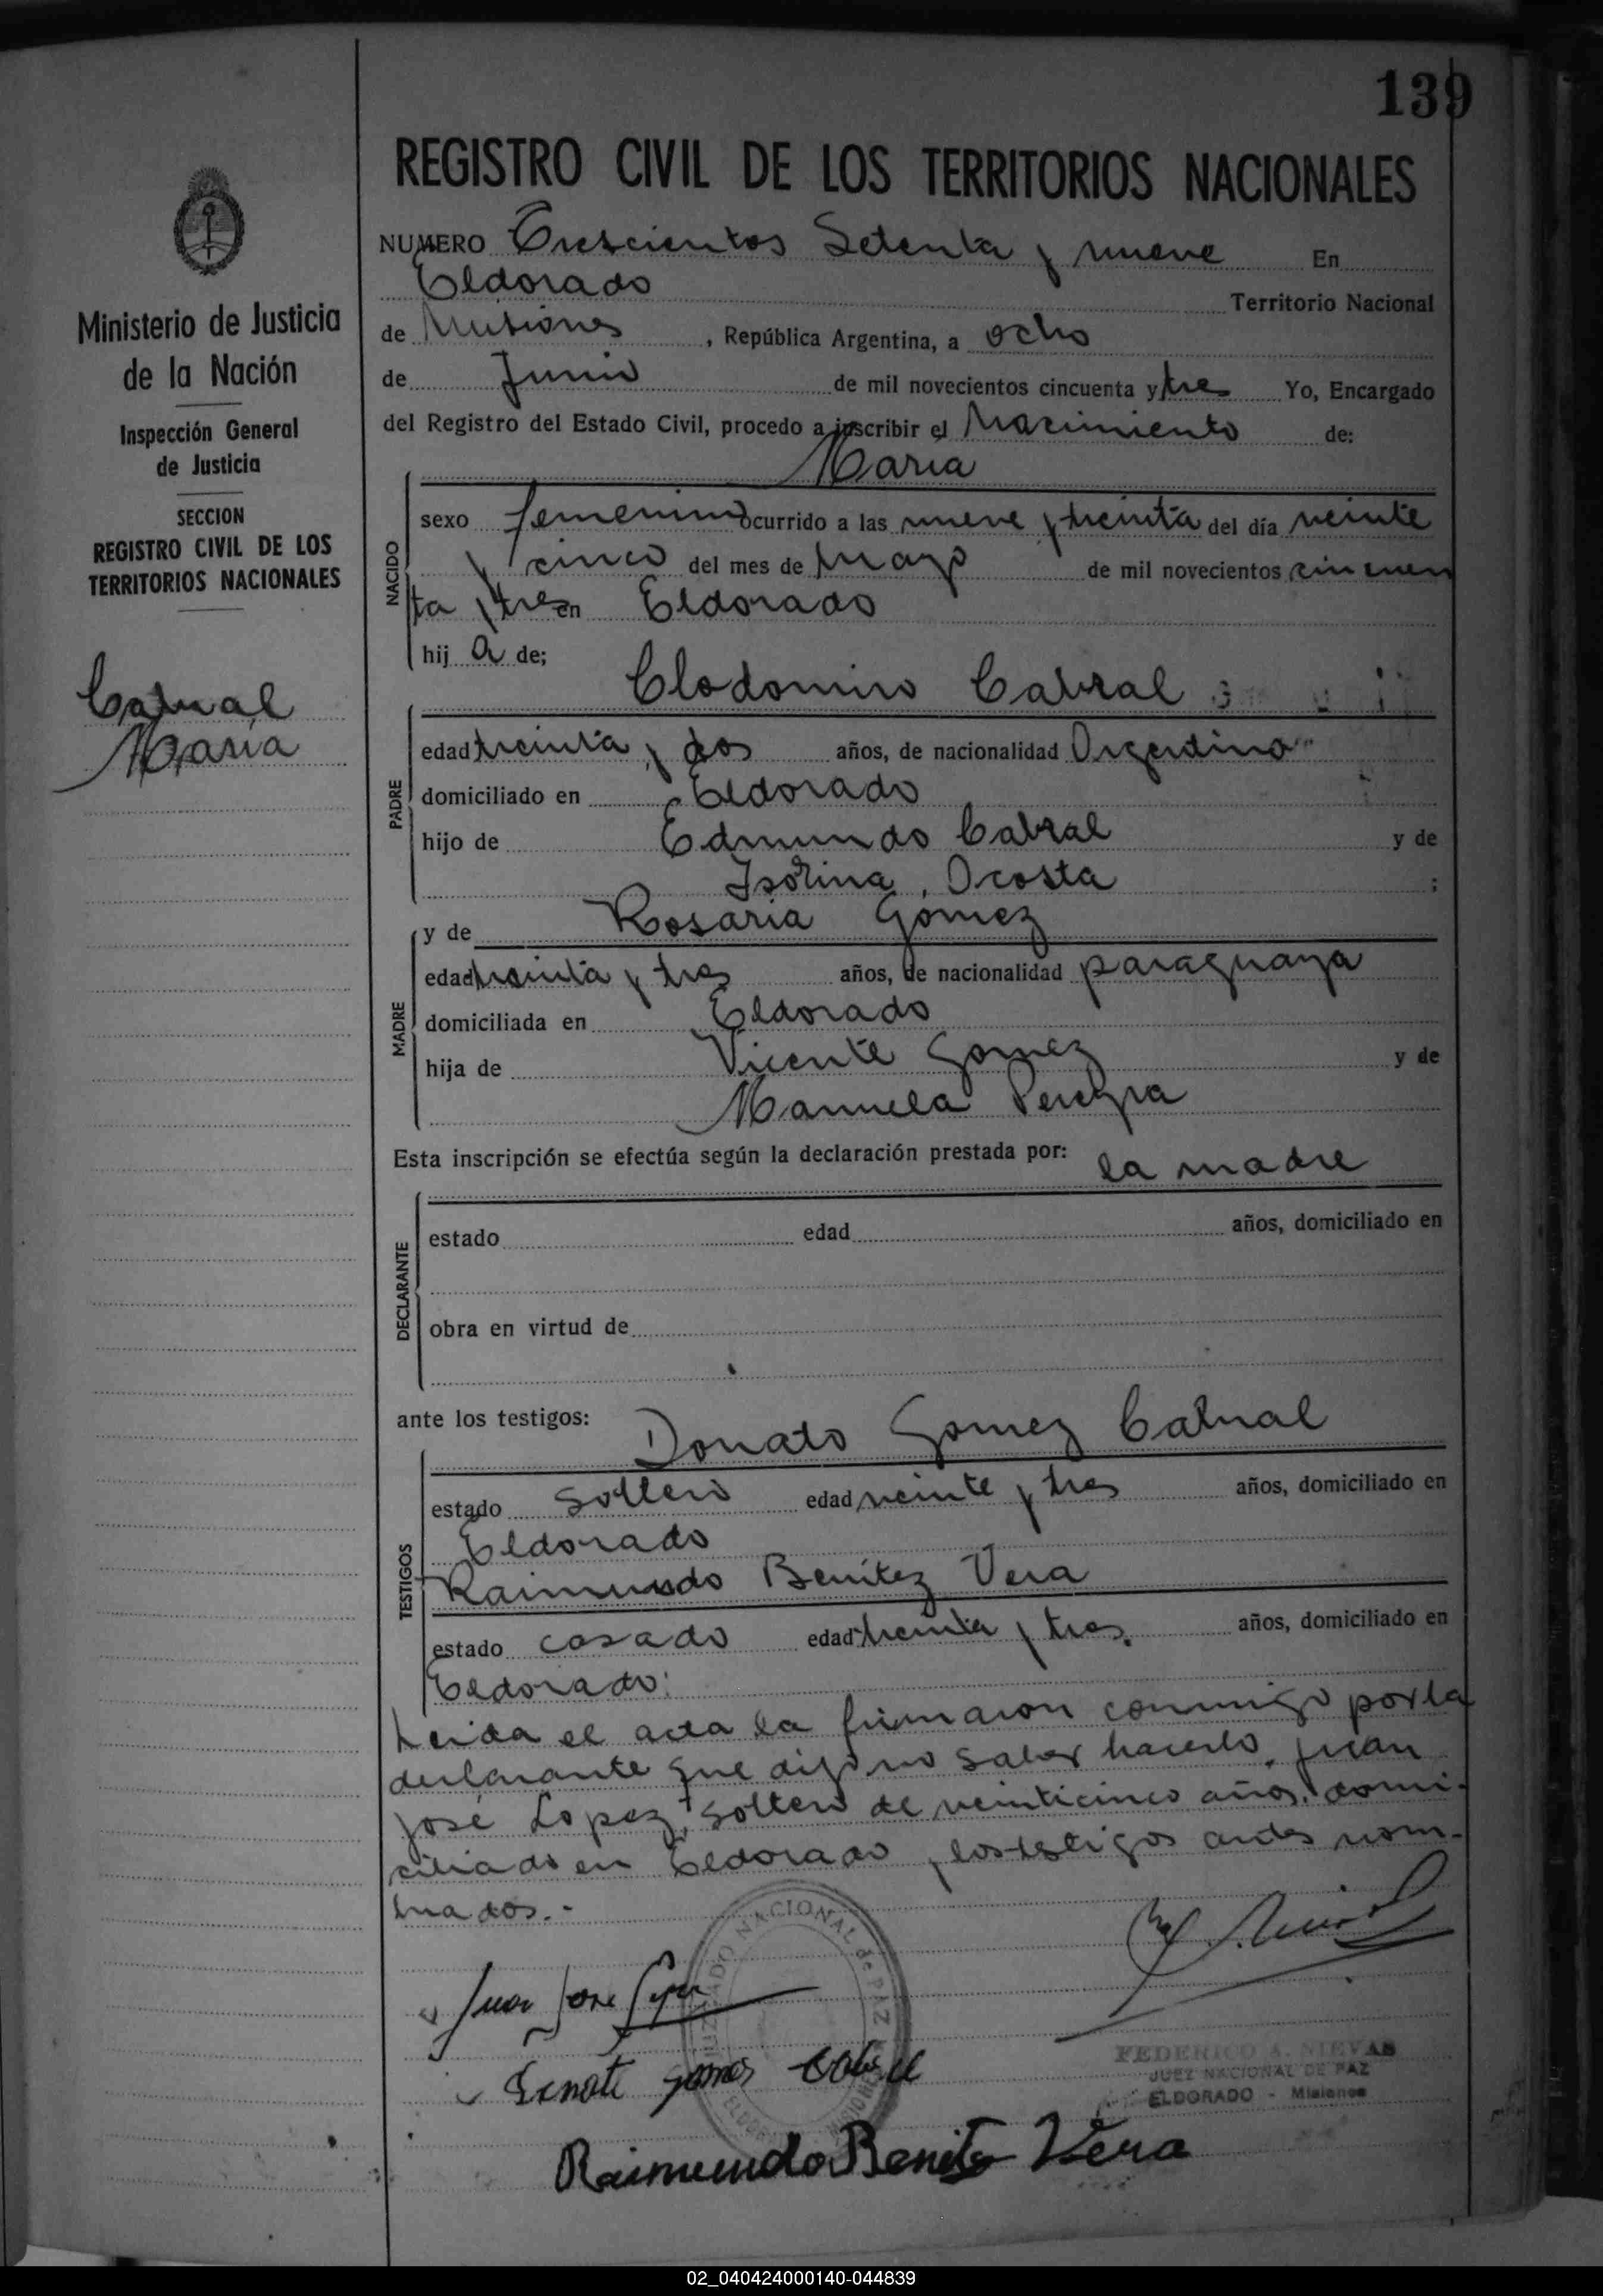 139
REGISTRO CIVIL DE LOS TERRITORIOS NACIONALES
Ministerio de Justicia
de la Nación
Inspección General
de Justicia
SECCION
REGISTRO CIVIL DE LOS
TERRITORIOS NACIONALES
Cabral
Maria
NUMERO Trescientos Setenta y nueve En
Eldorado Territorio Nacional
de Misiones, República Argentina, a ocho
de Junio de mil novecientos cincuenta y tres Yo, Encargado
del Registro del Estado Civil, procedo a inscribir el Nacimiento de:
Maria
NACIDO
sexo femenino ocurrido a las nueve y treinta del día veinte
y cinco del mes de mayo de mil novecientos cincuen
ta y tres en Eldorado
hij a de;
Clodomiro Cabral
PADRE
edad treinta y dos años, de nacionalidad Argentino
domiciliado en Eldorado
hijo de Edmundo Cabral y de
Isorina Acosta ;
y de Rosaria Gómez
MADRE
edad treinta y tres años, de nacionalidad paraguaya
domiciliada en Eldorado
hija de Vicente Gomez y de
Manuela Pereyra
Esta inscripción se efectúa según la declaración prestada por: la madre
DECLARANTE
estado edad años, domiciliado en
obra en virtud de
ante los testigos: Donato Gomez Cabral
TESTIGOS
estado soltero edad veinte y tres años, domiciliado en
Eldorado
Raimundo Benítez Vera
estado casado edad treinta y tres. años, domiciliado en
Eldorado:
Leida el acta la firmaron conmigo por la
declarante que dijo no saber hacerlo, Juan
José Lopez, soltero de veinticinco años, domi-
ciliado en Eldorado y los testigos antes nom-
brados.-
Juan Jose Lopez
JUZGADO NACIONAL de PAZ
ELDORADO MISIONES
FEDERICO A. NIEVAS
JUEZ NACIONAL DE PAZ
ELDORADO - Misiones
Gomes Cabral
Raimundo Benite Vera
02_040424000140-044839